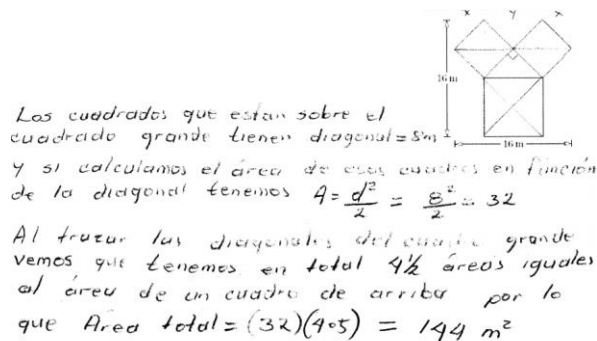 x y x
16 m
16 m
Los cuadrados que estan sobre el
cuadrado grande tienen diagonal = 8m
y si calculamos el área de esos cuadros en función
de la diagonal tenemos A = d²/2 = 8²/2 = 32
Al trazar las diagonales del cuadro grande
vemos que tenemos en total 4½ áreas iguales
al área de un cuadro de arriba por lo
que Area total = (32)(4.5) = 144 m²